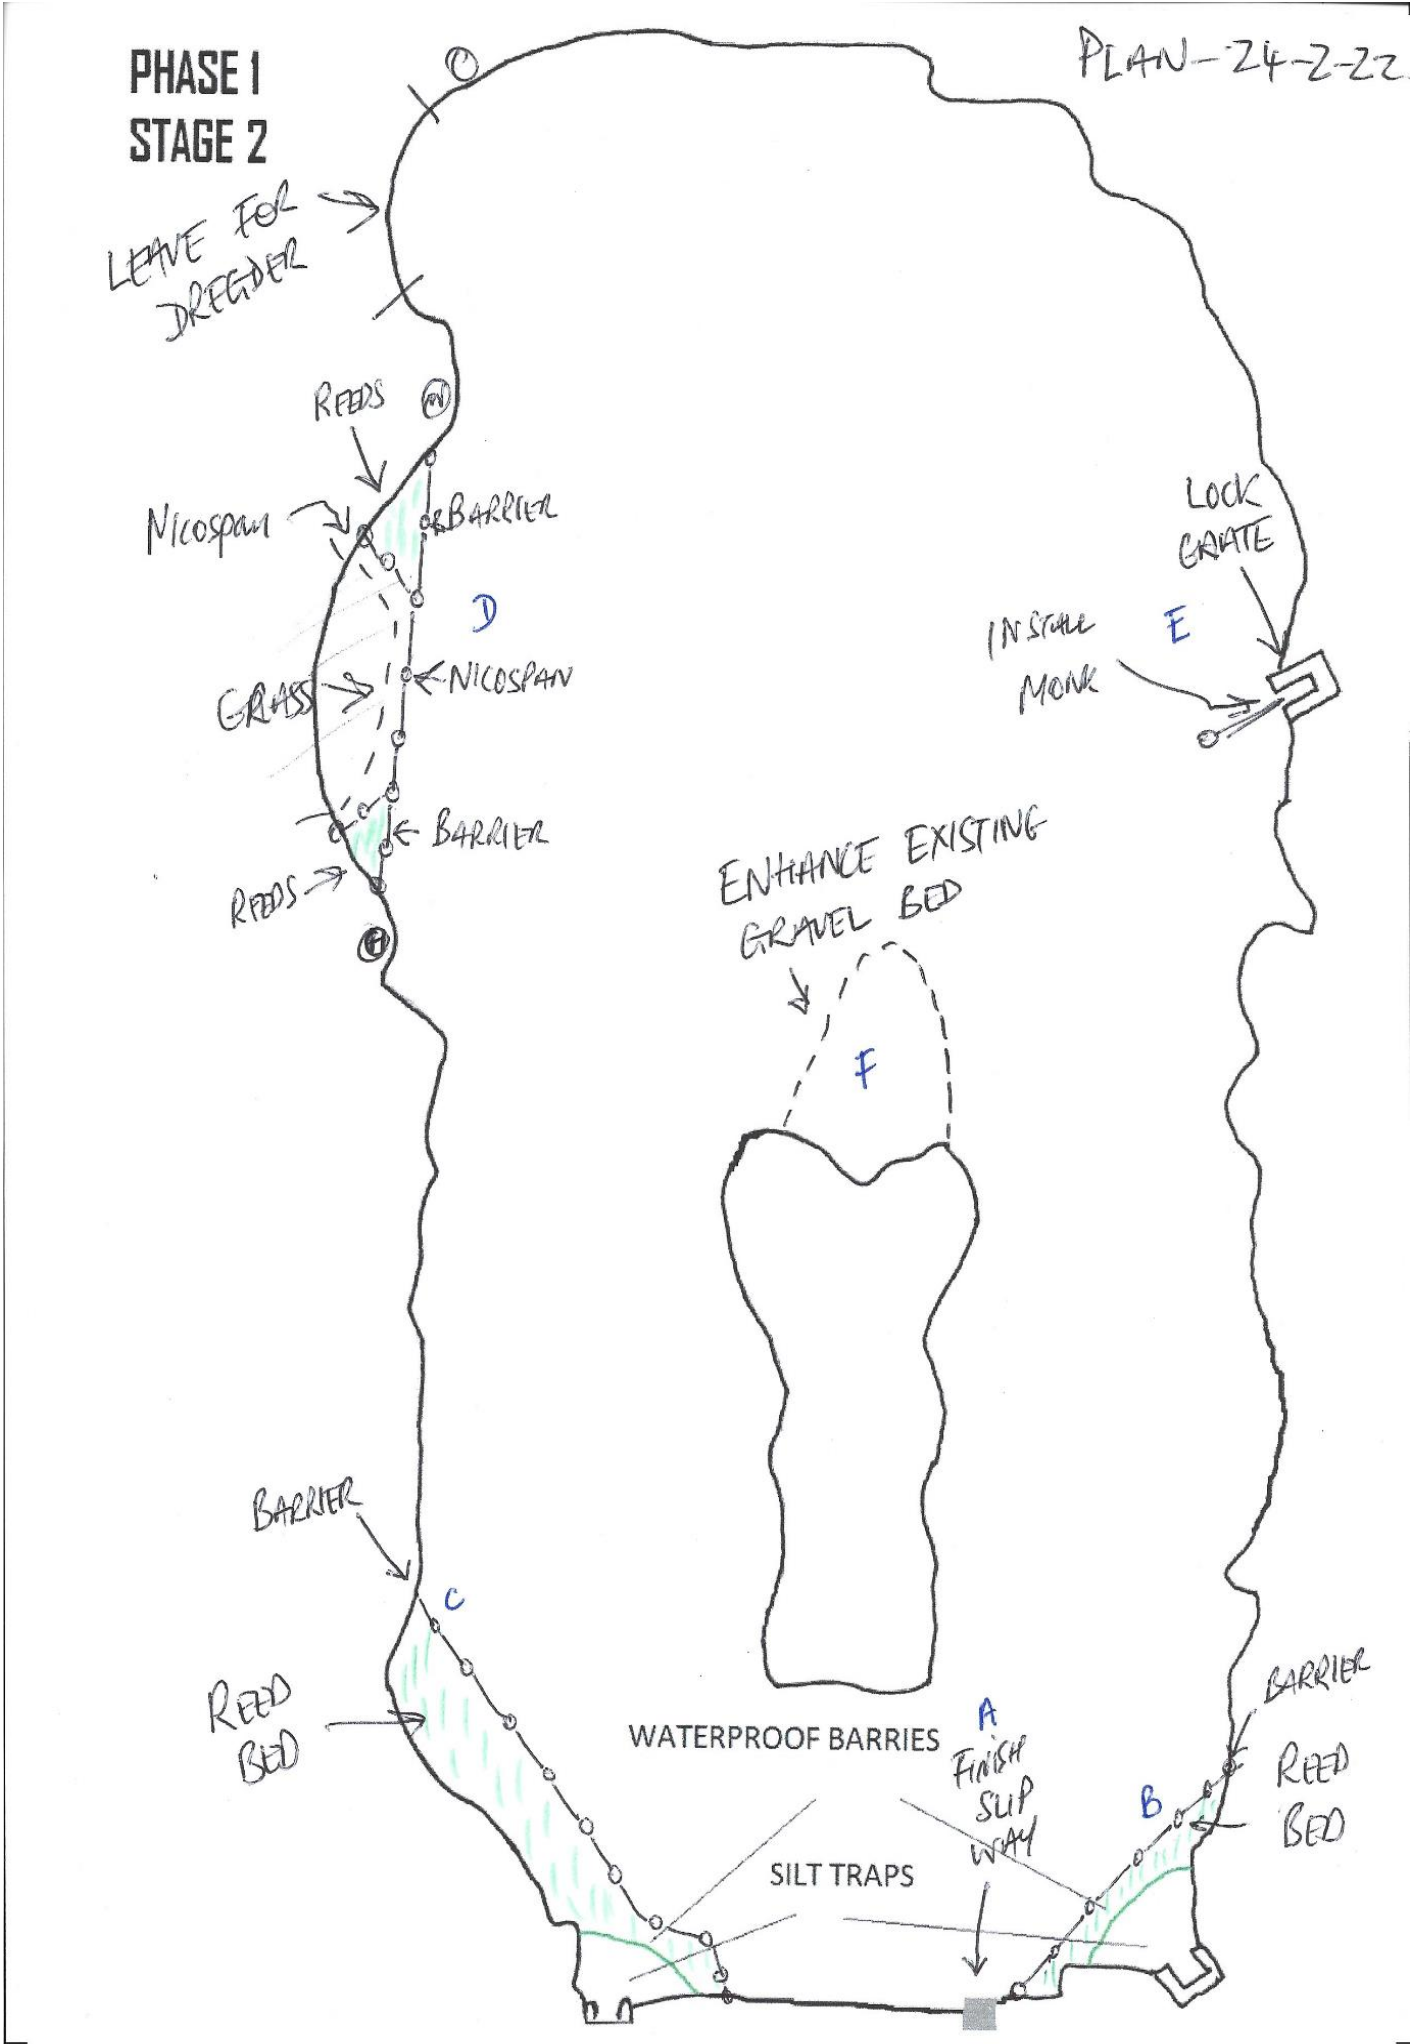 PHASE 1
STAGE 2
PLAN-24-2-22
LEAVE FOR
DREGDER
REEDS
Nicospan
BARRIER
D
NICOSPAN
GRASS
BARRIER
REEDS
H
LOCK
GRATE
E
INSTALL
MONK
ENHANCE EXISTING
GRAVEL BED
F
BARRIER
C
REED
BED
WATERPROOF BARRIES
A
FINISH
SLIP
WAY
SILT TRAPS
B
BARRIER
REED
BED